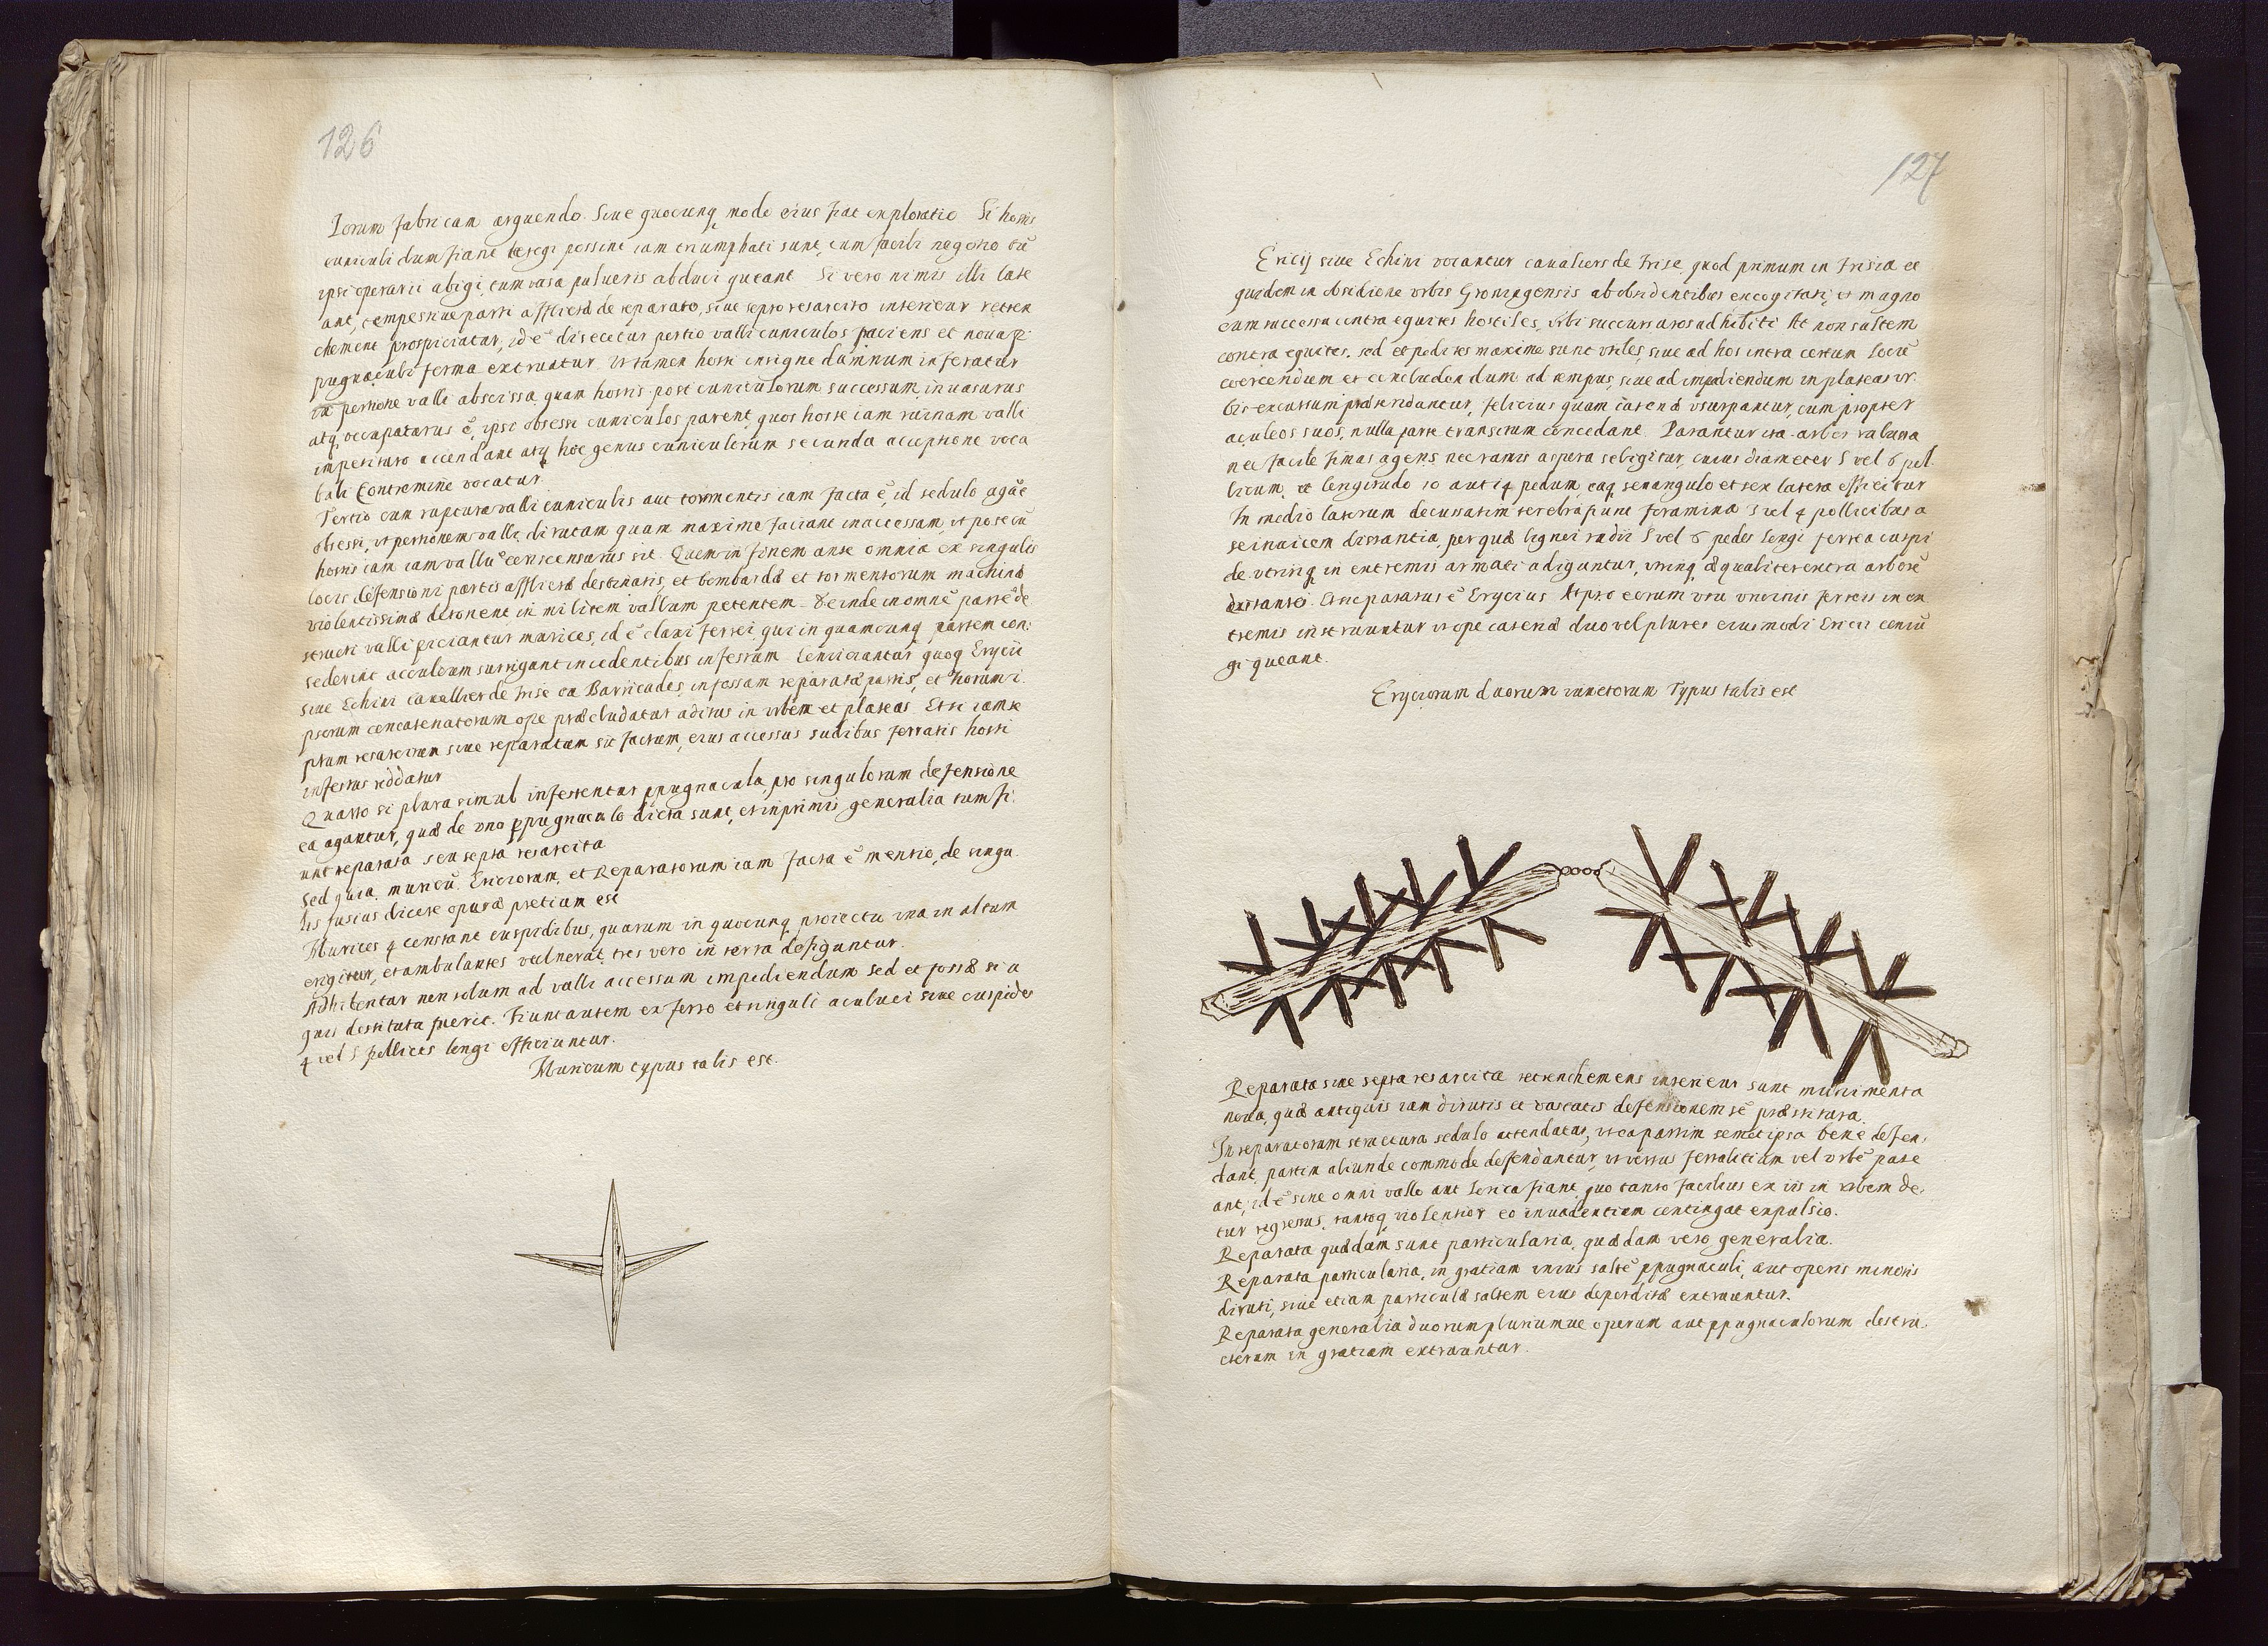 126
lorum fabricam arguendo. Siue quocunq modo eius fiat exploratio Si hostis
cuniculi dum fiant detegi possint iam triumphati sunt, cum facili negotio tū
ipsi operarii abigi, tum vasa pulueris abduci queant Si vero nimis illi late
ant, tempestiue parti afflictæ de reparato, siue septo resarcito interieur retren
chement prospiciatur, id ē disecetur portio valli cuniculos paciens et noua p̱
pugnaculi forma extruatur Vt tamen hosti insigne damnum inferatur
in portione valli abscissa quam hostis post cuniculorum successum, inuasurus
atq occupaturus ē, ipsi obsessi cuniculos parent, quos hoste iam ruinam valli
impetituro accendant atq hoc genus cuniculorum secunda acceptione voca
buli Contremine vocatur.
Tertio cum ruptura valli cuniculis aut tormentis iam facta ē, id sedulo agāt
obsessi, vt portionem valli dirutam quam maxime faciant inaccessam, vt pote cū
hostis iam iam vallū conscensurus sit. Quem in finem ante omnia ex singulis
locis defensioni partis afflictæ destinatis, et bombardæ et tormentorum machinæ
violentissimæ detonent in militem vallum petentem. Deinde in omnē partē de
structi valli proiciantur murices, id ē claui ferrei, qui in quamcunq partem con:
sederint acculeum surrigant incedentibus infestum Coniiciantur quoq Erycii
siue Echini cauallier de frise ou Barricades, in fossam reparatæ partis, et horum i.
psorum concatenatorum ope præcludatur aditus in vrbem et plateas Et si iam se
ptum resarcitum siue reparatum sit factum, eius accessus sudibus ferratis hosti
infestus reddatur
Quarto si plura simul infestentur p̱pugnacula, pro singulorum defensione
ea agantur, quæ de vno p̱pugnaculo dicta sunt, et inprimis generalia tum fi.
unt reparata seu septa resarcita
Sed quia muricū Ericiorum, et Reparatorum iam facta ē mentio, de singu.
lis fusius dicere operæ pretium est
Murices 4 constant cuspidibus, quarum in quocunq proiectu vna in altum
erigitur, et ambulantes vulnerat, tres vero in terra defiguntur.
Adhibentur non solum ad valli accessum impediendum sed et fossæ si a
quis destituta fuerit. Fiunt autem ex ferro et singuli aculuei siue cuspides
4 vel 5 pollices longi efficiuntur.
Muricum typus talis est.
127
Ericij siue Echini vocantur caualiers de frise quod primum in frisia et
quidem in obsidione vrbis Groningensis ab obsidentibus excogitati, et magno
cum successu contra equites hostiles, vrbi succursuros adhibiti At non saltem
contra equites. sed et pedites maxime sunt vtiles siue ad hos intra certum locū
coercendum et concludendum ad tempus, siue ad impediendum in plateas vr.
bis excursum prætendantur, felicius quam catenæ vsurpantur, cum propter
aculeos suos, nulla parte transitum concedant. Parantur ita arbor valida
nec facile fimas agens nec ramis aspera seligitur, cuius diameter 5 vel 6 pol.
licum, et longitudo 10 aut 14 pedum, eaq sexangulo et sex latera efficitur
In medio laterum decussatim terebrā fiunt foramina 3 vel 4 pollicibus a
seinuicem distantia, per quæ lignei radii 5 vel 6 pedes longi ferrea cuspi
de vtrinq in extremis armati adiguntur, vtrinq æqualiter extra arborē
distantes. Atque paratus ē Erycius At pro eorum vsu vncinis ferreis in ex
tremis instruuntur vt ope catenæ duo vel plures eiusmodi Ericii coniū
gi queant.
Eryciorum duorum iunctorum Typus talis est
Reparata siue septa resarcita retrenchemens interieur sunt munimenta
noua, quæ antiquis iam dirutis et vastatis defensionem sē præstitura.
In reparatorum structura sedulo attendatur, vt ea partim semet ipsa bene defen.
dant, partim aliunde commode defendantur, vt versus fortalitiam vel vrbē pate
ant, id ē sine omni vallo aut lorica fiant, quo tanto facilius ex iis in vrbem de.
tur regressus, tantoq violentior eo inuadentium contingat expulsio.
Reparata quædam sunt particularia, quædam vero generalia.
Reparata particularia, in gratiam vnius saltē p̱pugnaculi, aut operis minoris
diruti, siue etiam particulæ saltem eius deperditæ extruuntur.
Reparata generalia duorum pluriumue operum aut p̱pugnaculorum destru.
ctorum in gratiam extruuntur.